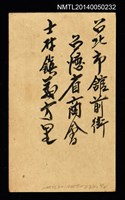 NMTL20140050232
台北市館前街
台灣省商會
士林鎮義方里